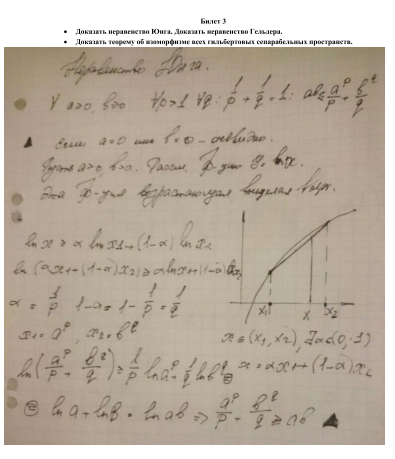 Билет 3
• Доказать неравенство Юнга. Доказать неравенство Гельдера.
• Доказать теорему об изоморфизме всех гильбертовых сепарабельных пространств.
Неравенство Юнга.
∀ a≥0, b≥0 ∀p>1 ∀q: 1/p + 1/q = 1: ab ≤ a^p/p + b^q/q
▲ если a=0 или b=0 – очевидно.
Пусть a>0, b>0. Рассм. ф-цию y=ln x.
Эта ф-ция возрастающая выпуклая вверх.
ln x ≥ α ln x1 + (1-α) ln x2
ln (αx1+(1-α)x2) ≥ α ln x1+(1-α) ln x2
α = 1/p 1-α = 1 - 1/p = 1/q
x1 x x2
x1 = a^p, x2 = b^q
x ∈ (x1, x2), ∃ α ∈ (0,1)
ln(a^p/p + b^q/q) ≥ 1/p ln a^p + 1/q ln b^q =
x = αx1 + (1-α)x2
= ln a + ln b = ln ab ⇒ a^p/p + b^q/q ≥ ab ▲